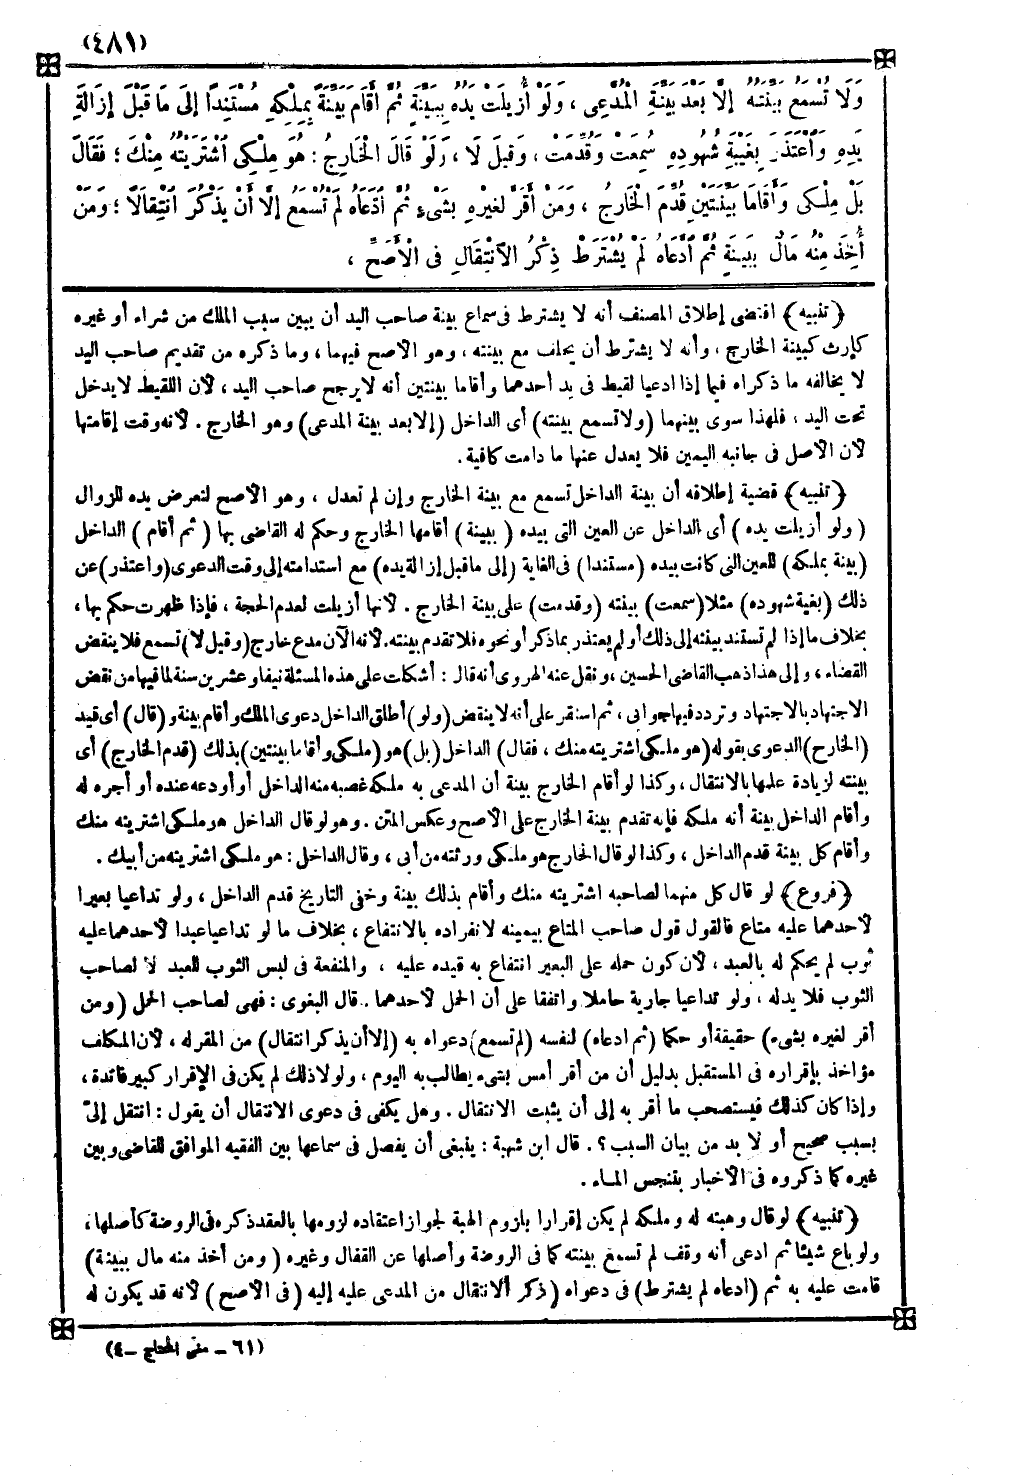 (٤٨١)
وَلَا تُسْمَعُ بَيِّنَتُهُ إلَّا بَعْدَ بَيِّنَةِ الْمُدَّعِى ، وَلَوْ أُزِيلَتْ يَدُهُ بِبَيِّنَةٍ ثُمَّ أَقَامَ بَيِّنَةً بِمِلْكِهِ مُسْتَنِدًا إلَى مَا قَبْلَ إزَالَةِ
يَدِهِ وَاعْتَذَرَ بِغَيْبَةِ شُهُودِهِ سُمِعَتْ وَقُدِّمَتْ ، وَقِيلَ لَا ، وَلَوْ قَالَ الْخَارِجُ : هُوَ مِلْكِى اشْتَرَيْتُهُ مِنْكَ ؛ فَقَالَ
بَلْ مِلْكِى وَأَقَامَا بَيِّنَتَيْنِ قُدِّمَ الْخَارِجُ ، وَمَنْ أَقَرَّ لِغَيْرِهِ بِشَىْءٍ ثُمَّ ادَّعَاهُ لَمْ تُسْمَعْ إلَّا أَنْ يَذْكُرَ انْتِقَالًا ؛ وَمَنْ
أُخِذَ مِنْهُ مَالٌ بِبَيِّنَةٍ ثُمَّ ادَّعَاهُ لَمْ يُشْتَرَطْ ذِكْرُ الِانْتِقَالِ فِى الْأَصَحِّ ،
﴿تنبيه﴾ اقتضى إطلاق المصنف أنه لا يشترط فى سماع بينة صاحب اليد أن يبين سبب الملك من شراء أو غيره
كإرث كبينة الخارج ، وأنه لا يشترط أن يحلف مع بينته ، وهو الأصح فيهما ، وما ذكره من تقديم صاحب اليد
لا يخالفه ما ذكراه فيما إذا ادعيا لقيط فى يد أحدهما وأقاما بينتين أنه لا يرجح صاحب اليد ، لأن اللقيط لا يدخل
تحت اليد ، فلهذا سوى بينهما (ولا تسمع بينته) أى الداخل (إلا بعد بينة المدعى) وهو الخارج . لأنه وقت إقامتها
لأن الأصل فى جانبه اليمين فلا يعدل عنها ما دامت كافية .
﴿تنبيه﴾ قضية إطلاقه أن بينة الداخل تسمع مع بينة الخارج وإن لم تعدل ، وهو الأصح لتعرض يده للزوال
( ولو أزيلت يده ) أى الداخل عن العين التى بيده ( ببينة ) أقامها الخارج وحكم له القاضى بها ( ثم أقام ) الداخل
(بينة بملكه) للعين التى كانت بيده (مستندا) فى الغاية (إلى ما قبل إزالة يده) مع استدامته إلى وقت الدعوى (واعتذر) عن
ذلك (بغيبة شهوده) مثلا (سمعت) بينته (وقدمت) على بينة الخارج . لأنها أزيلت لعدم الحجة ، فإذا ظهرت حكم بها ،
بخلاف ما إذا لم تستند بينته إلى ذلك أو لم يعتذر بما ذكر أو نحوه فلا تقدم بينته . لأنه الآن مدع خارج (وقيل لا) تسمع فلا ينقض
القضاء ، وإلى هذا ذهب القاضى الحسين ، ونقل عنه الهروى أنه قال : أشكلت على هذه المسئلة نيفا وعشرين سنة لما فيها من نقض
الاجتهاد بالاجتهاد وتردد فيها جوابى ، ثم استقر على أنه لا ينقض (ولو) أطلق الداخل دعوى الملك وأقام بينة و (قال) أى قيد
(الخارج) الدعوى بقوله (هو ملكى اشتريته منك ، فقال) الداخل (بل) هو (ملكى وأقاما بينتين) بذلك (قدم الخارج) أى
بينته لزيادة علمها بالانتقال ، وكذا لو أقام الخارج بينة أن المدعى به ملكه غصبه منه الداخل أو أودعه عنده أو أجره له
وأقام الداخل بينة أنه ملكه فإنه تقدم بينة الخارج على الأصح وعكس المتن . وهو لو قال الداخل هو ملكى اشتريته منك
وأقام كل بينة قدم الداخل ، وكذا لو قال الخارج هو ملكى ورثته من أبى ، وقال الداخل : هو ملكى اشتريته من أبيك .
﴿فروع﴾ لو قال كل منهما لصاحبه اشتريته منك وأقام بذلك بينة وخفى التاريخ قدم الداخل ، ولو تداعيا بعيرا
لأحدهما عليه متاع فالقول قول صاحب المتاع بيمينه لانفراده بالانتفاع ، بخلاف ما لو تداعيا عبدا لأحدهما عليه
ثوب لم يحكم له بالعبد ، لأن كون حمله على البعير انتفاع به قيده عليه ، والمنفعة فى لبس الثوب للعبد لا لصاحب
الثوب فلا يد له ، ولو تداعيا جارية حاملا واتفقا على أن الحمل لأحدهما . قال البغوى : فهى لصاحب الحمل (ومن
أقر لغيره بشىء) حقيقة أو حكما (ثم ادعاه) لنفسه (لم تسمع) دعواه به (إلا أن يذكر انتقال) من المقر له ، لأن المكلف
مؤاخذ بإقراره فى المستقبل بدليل أن من أقر أمس بشىء يطالب به اليوم ، ولولا ذلك لم يكن فى الإقرار كبير فائدة ،
وإذا كان كذلك فيستصحب ما أقر به إلى أن يثبت الانتقال . وهل يكفى فى دعوى الانتقال أن يقول : انتقل إلىّ
بسبب صحيح أو لا بد من بيان السبب ؟ . قال ابن شهبة : ينبغى أن يفصل فى سماعها بين الفقيه الموافق للقاضى وبين
غيره كما ذكروه فى الأخبار بتنجس الماء .
﴿تنبيه﴾ لو قال وهبته له وملكه لم يكن إقرارا بلزوم الهبة لجواز اعتقاده لزومها بالعقد ذكره فى الروضة كأصلها ،
ولو باع شيئا ثم ادعى أنه وقف لم تسمع بينته كما فى الروضة وأصلها عن القفال وغيره ( ومن أخذ منه مال ببينة)
قامت عليه به ثم (ادعاه لم يشترط) فى دعواه (ذكر الانتقال من المدعى عليه إليه (فى الأصح) لأنه قد يكون له
(٦١ - مغنى المحتاج - ٤)